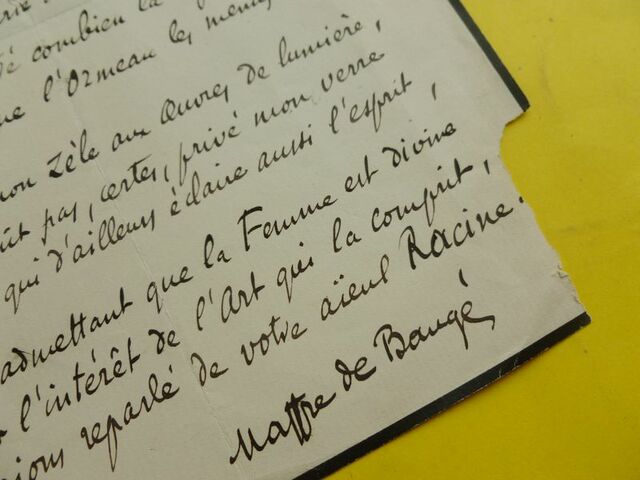 combien la
l'Ormeau les
mon zèle aux Œuvres de lumière,
pas, certes, privé mon verre
qui d'ailleurs éclaire aussi l'esprit,
admettant que la Femme est divine
l'intérêt de l'Art qui la comprit,
reparlé de votre aïeul Racine.
Maffre de Baugé,